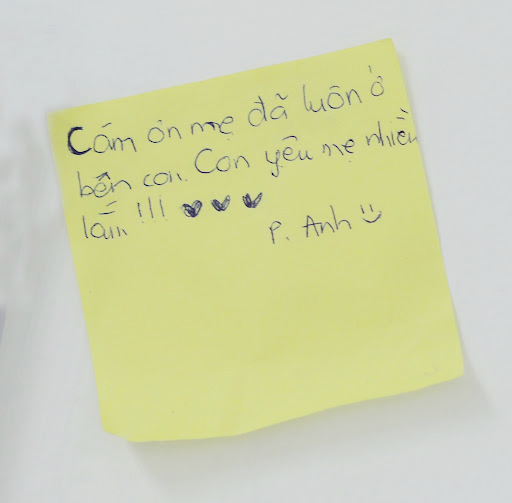 Cám ơn mẹ đã luôn ở
bên con. Con yêu mẹ nhiều
lắm!!! ♥♥♥
P. Anh :)